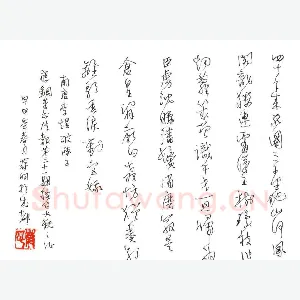 四十年来家國三千里地山河鳳
閣龍樓連霄漢玉樹瓊枝作
烟蘿幾曾識干戈一旦歸為
臣虜沈腰潘鬢消磨最是
倉皇辭廟日教坊猶奏別
離歌垂淚對宮娥
南唐李煜破陣子
Shufawang.cn